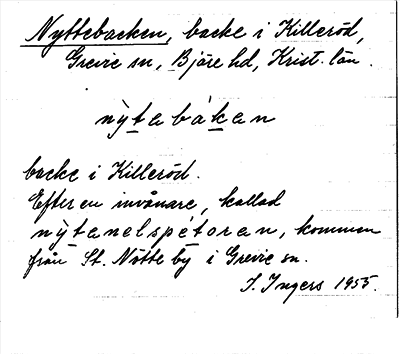 Nyttebacken, backe i Killeröd,
Grevie sn, Bjäre hd, Krist. län.
nỳtabákan
backe i Killeröd.
Efter en invånare, kallad
nỳtanelspétoran, kommen
från St. Nötte by i Grevie sn.
I. Ingers 1955.